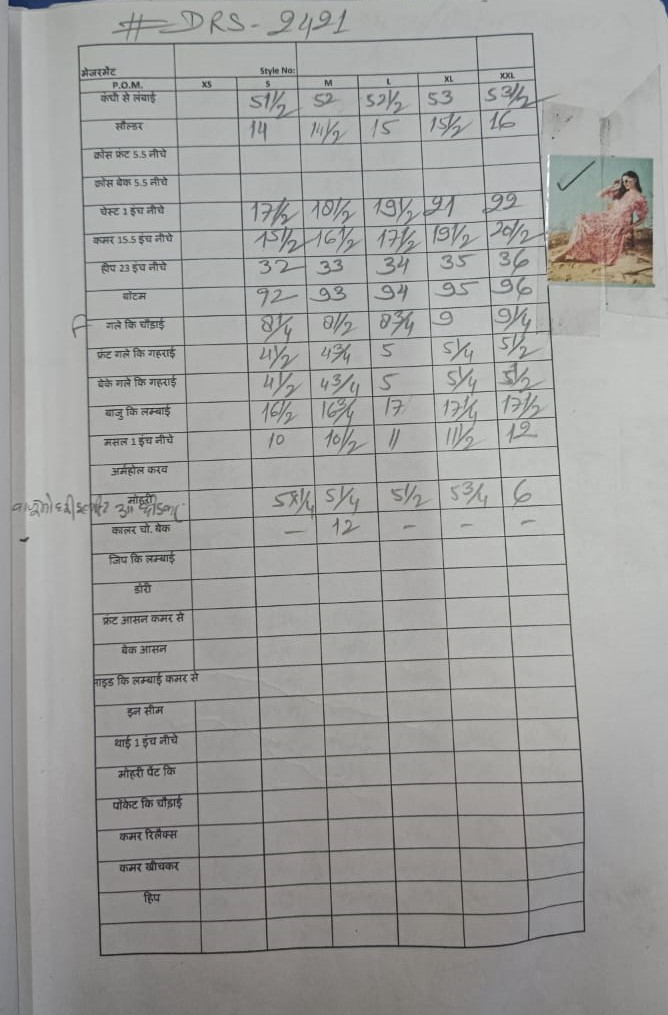 # DRS - 2421
मेजरमेंट Style No:
P.O.M. XS S M L XL XXL
कंधी से लंबाई 51 1/2 52 52 1/2 53 53 1/2
सोल्डर 14 14 1/2 15 15 1/2 16
क्रोस फ्रंट 5.5 नीचे
क्रोस बेक 5.5 नीचे
चेस्ट 1 इंच नीचे 17 1/2 18 1/2 19 1/2 21 22
कमर 15.5 इंच नीचे 15 1/2 16 1/2 17 1/2 19 1/2 20 1/2
हीप 23 इंच नीचे 32 33 34 35 36
बोटम 92 93 94 95 96
गले कि चौड़ाई 8 1/4 8 1/2 8 3/4 9 9 1/4
फ्रंट गले कि गहराई 4 1/2 4 3/4 5 5 1/4 5 1/2
बेके गले कि गहराई 4 1/2 4 3/4 5 5 1/4 5 1/2
बाजु कि लम्बाई 16 1/2 16 3/4 17 17 1/4 17 1/2
मसल 1 इंच नीचे 10 10 1/2 11 11 1/2 12
अर्महोल करव
मोहरी 5 1/4 5 1/2 5 3/4 6
कालर चो. बेक - 12 - - -
जिप कि लम्बाई
डोरी
फ्रंट आसन कमर से
बेक आसन
साइड कि लम्बाई कमर से
इन सीम
थाई 1 इंच नीचे
मोहरी पेंट कि
पॉकेट कि चौड़ाई
कमर रिलैक्स
कमर खीचकर
हिप